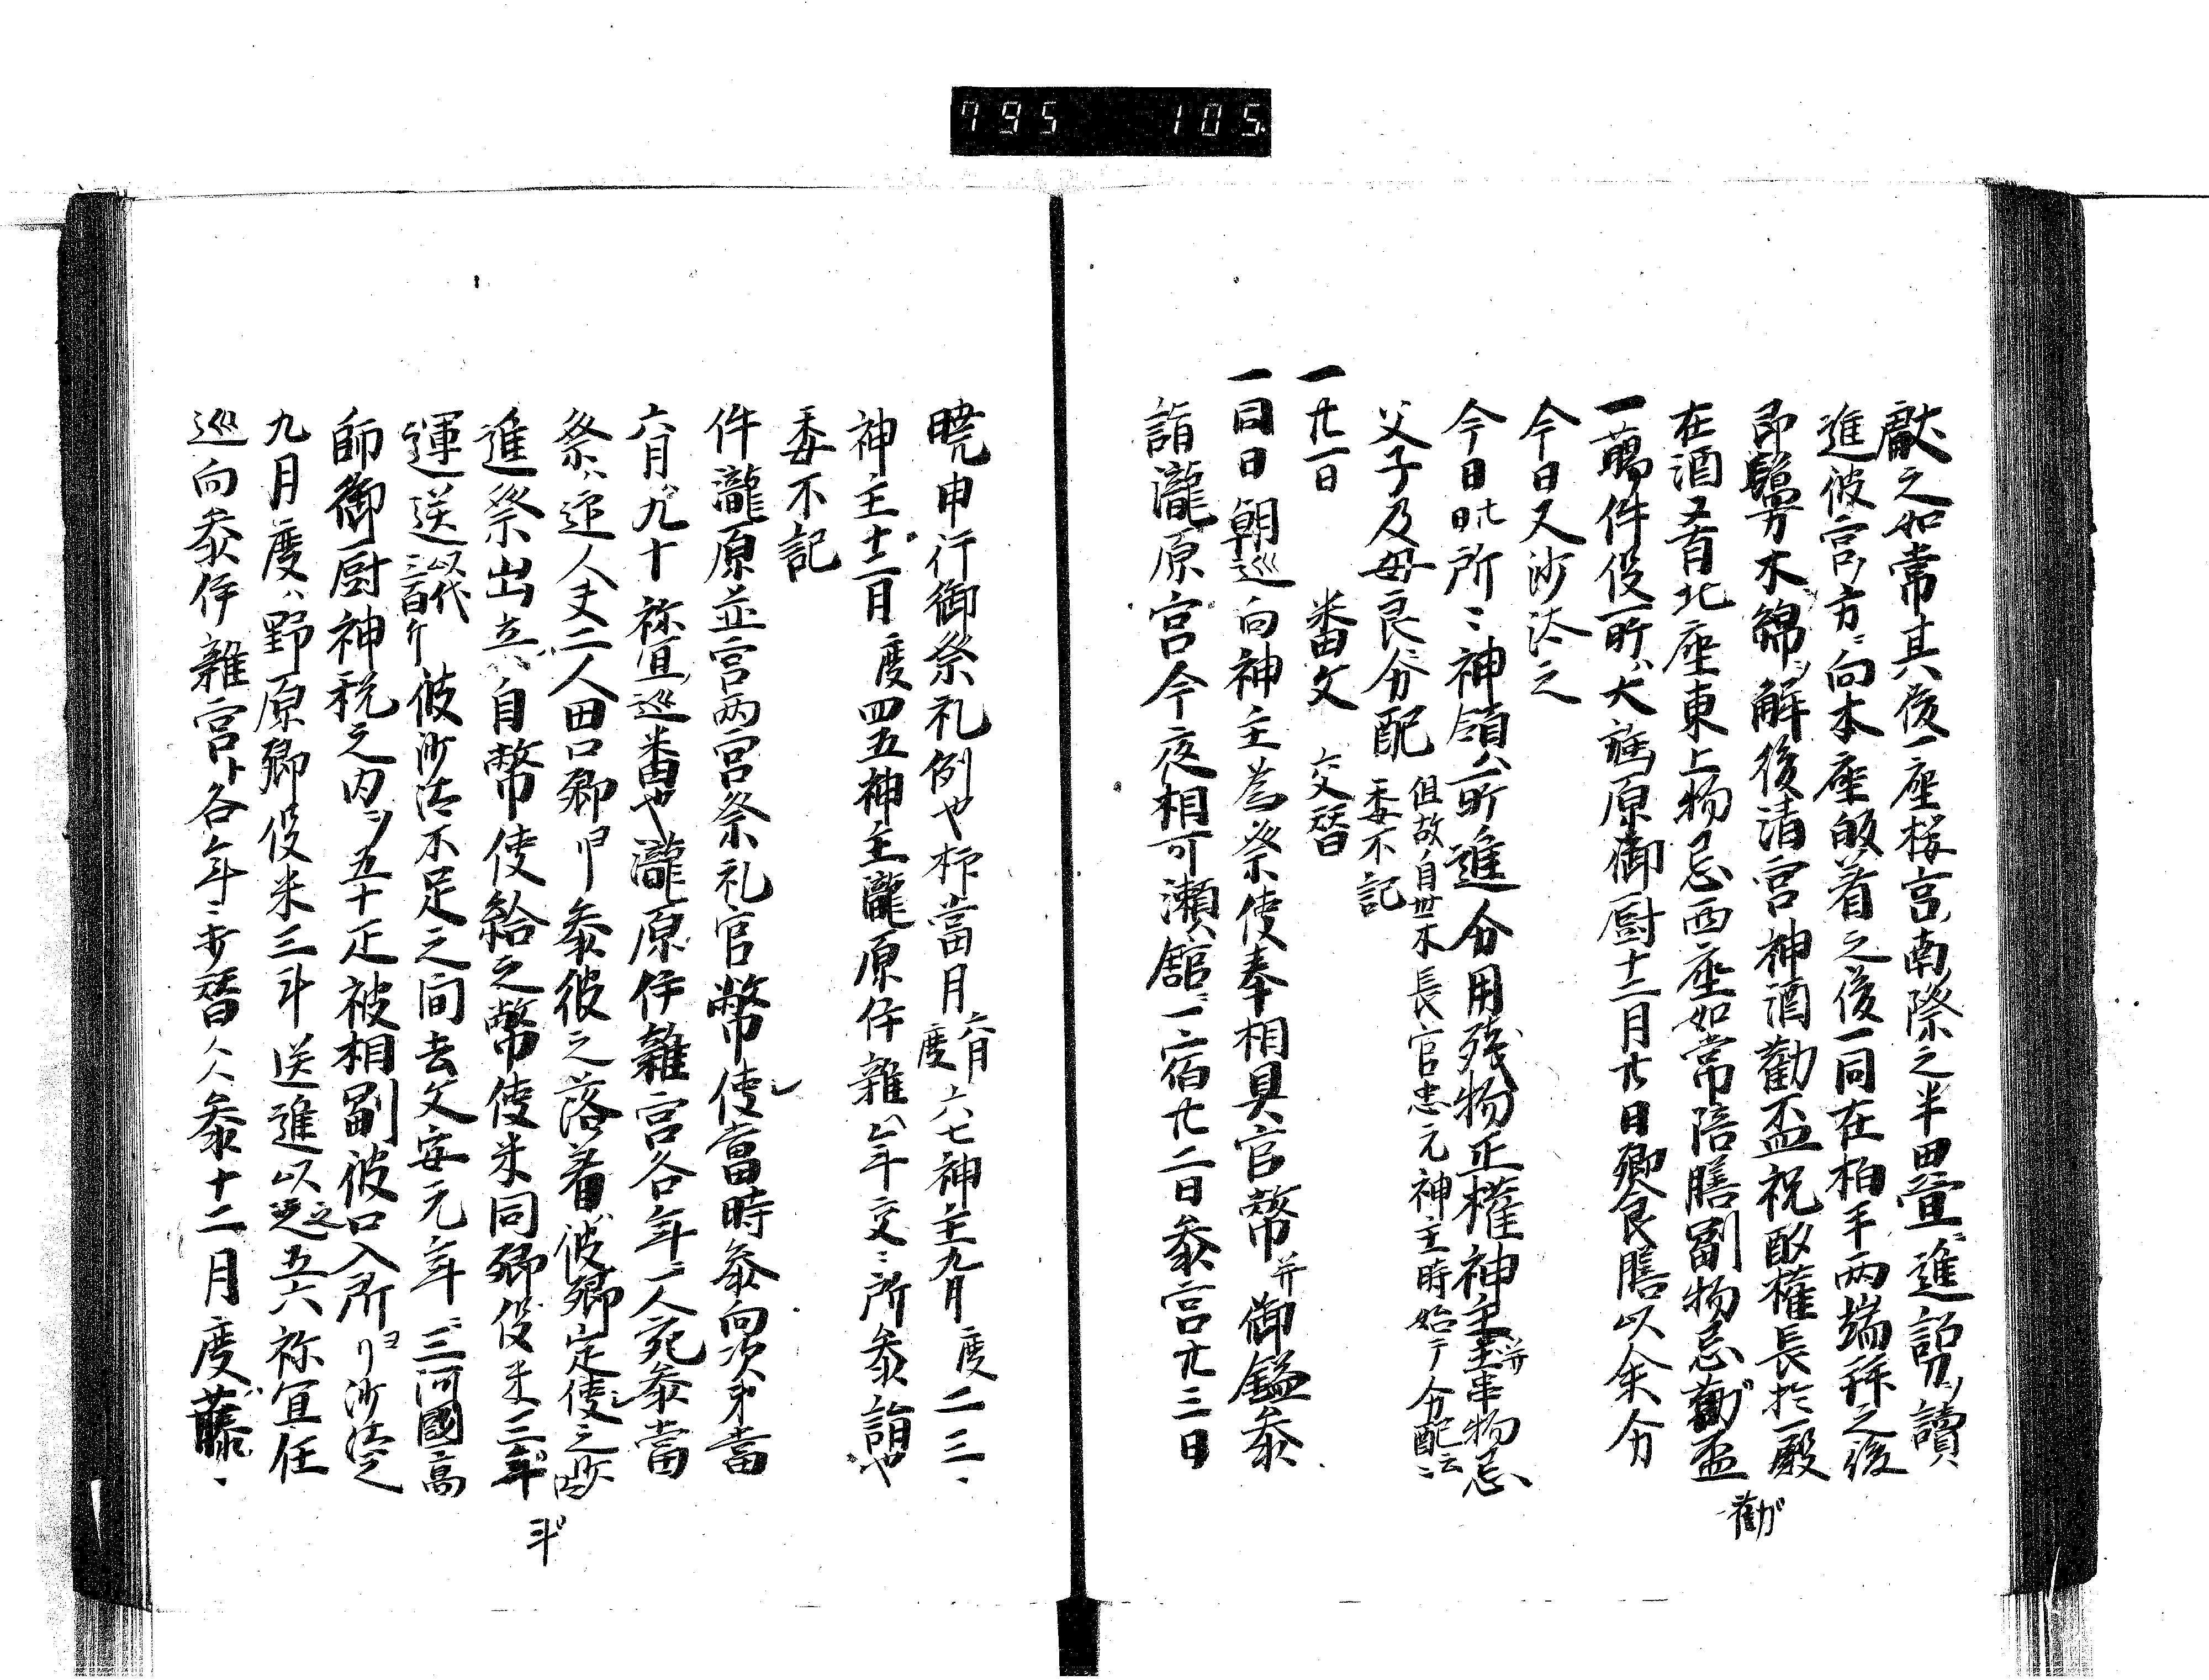 795 105
献之如常其後一座桜宮ノ南際之半畳ニ進詔刀ヲ讀
進彼宮ノ方ニ向本座皈着之後一同在柏手两端拜之後
即鬘木綿ヲ解後清宮神酒勧盃祝部権長於一殿
在酒又肴北座東上物忌西座如常陪膳副物忌勧盃
勧
一萬件役所ハ大墓原御厨十二月廿日饗食膳以余分
今日又沙汰之
今日廿日所ニ神領八所進分用残物正権神主并玉串物忌
父子及母良ニ分配 但故ハ自世木長官忠元神主時始テ分配云ニ
委不記
一廿一日 番文 交替
一同日朝巡向神主為祭使奉相具官幣并御鎰参
詣瀧原宮今夜相可瀬舘ニ一宿廿二日参宮廿三日
暁申行御祭礼例也抑當月六月度六七神主九月度二三
神主十二月度四五神主瀧原伊雜ハ年交ニ所参詣也
委不記
件瀧原並宮两宮祭礼官幣使當時参向次第當
六月九十祢宜巡番也瀧原伊雜宮各年ニ一人宛参當
祭ハ迎人夫二人田口郷ヨリ参彼之落着ハ彼郷定使之所
進祭出立ハ自幣使給之幣使米同郷役米三斗
運送以代三百文彼沙汰不足之間去文安元年ニ三河國高
師御厨神税之内ヲ五十疋被相副彼口入所ヨリ沙汰之
九月度ハ野原郷役米三斗送進以之五六祢宜任
巡向参伊雜宮ト各年ニ歩替人参十二月度藤